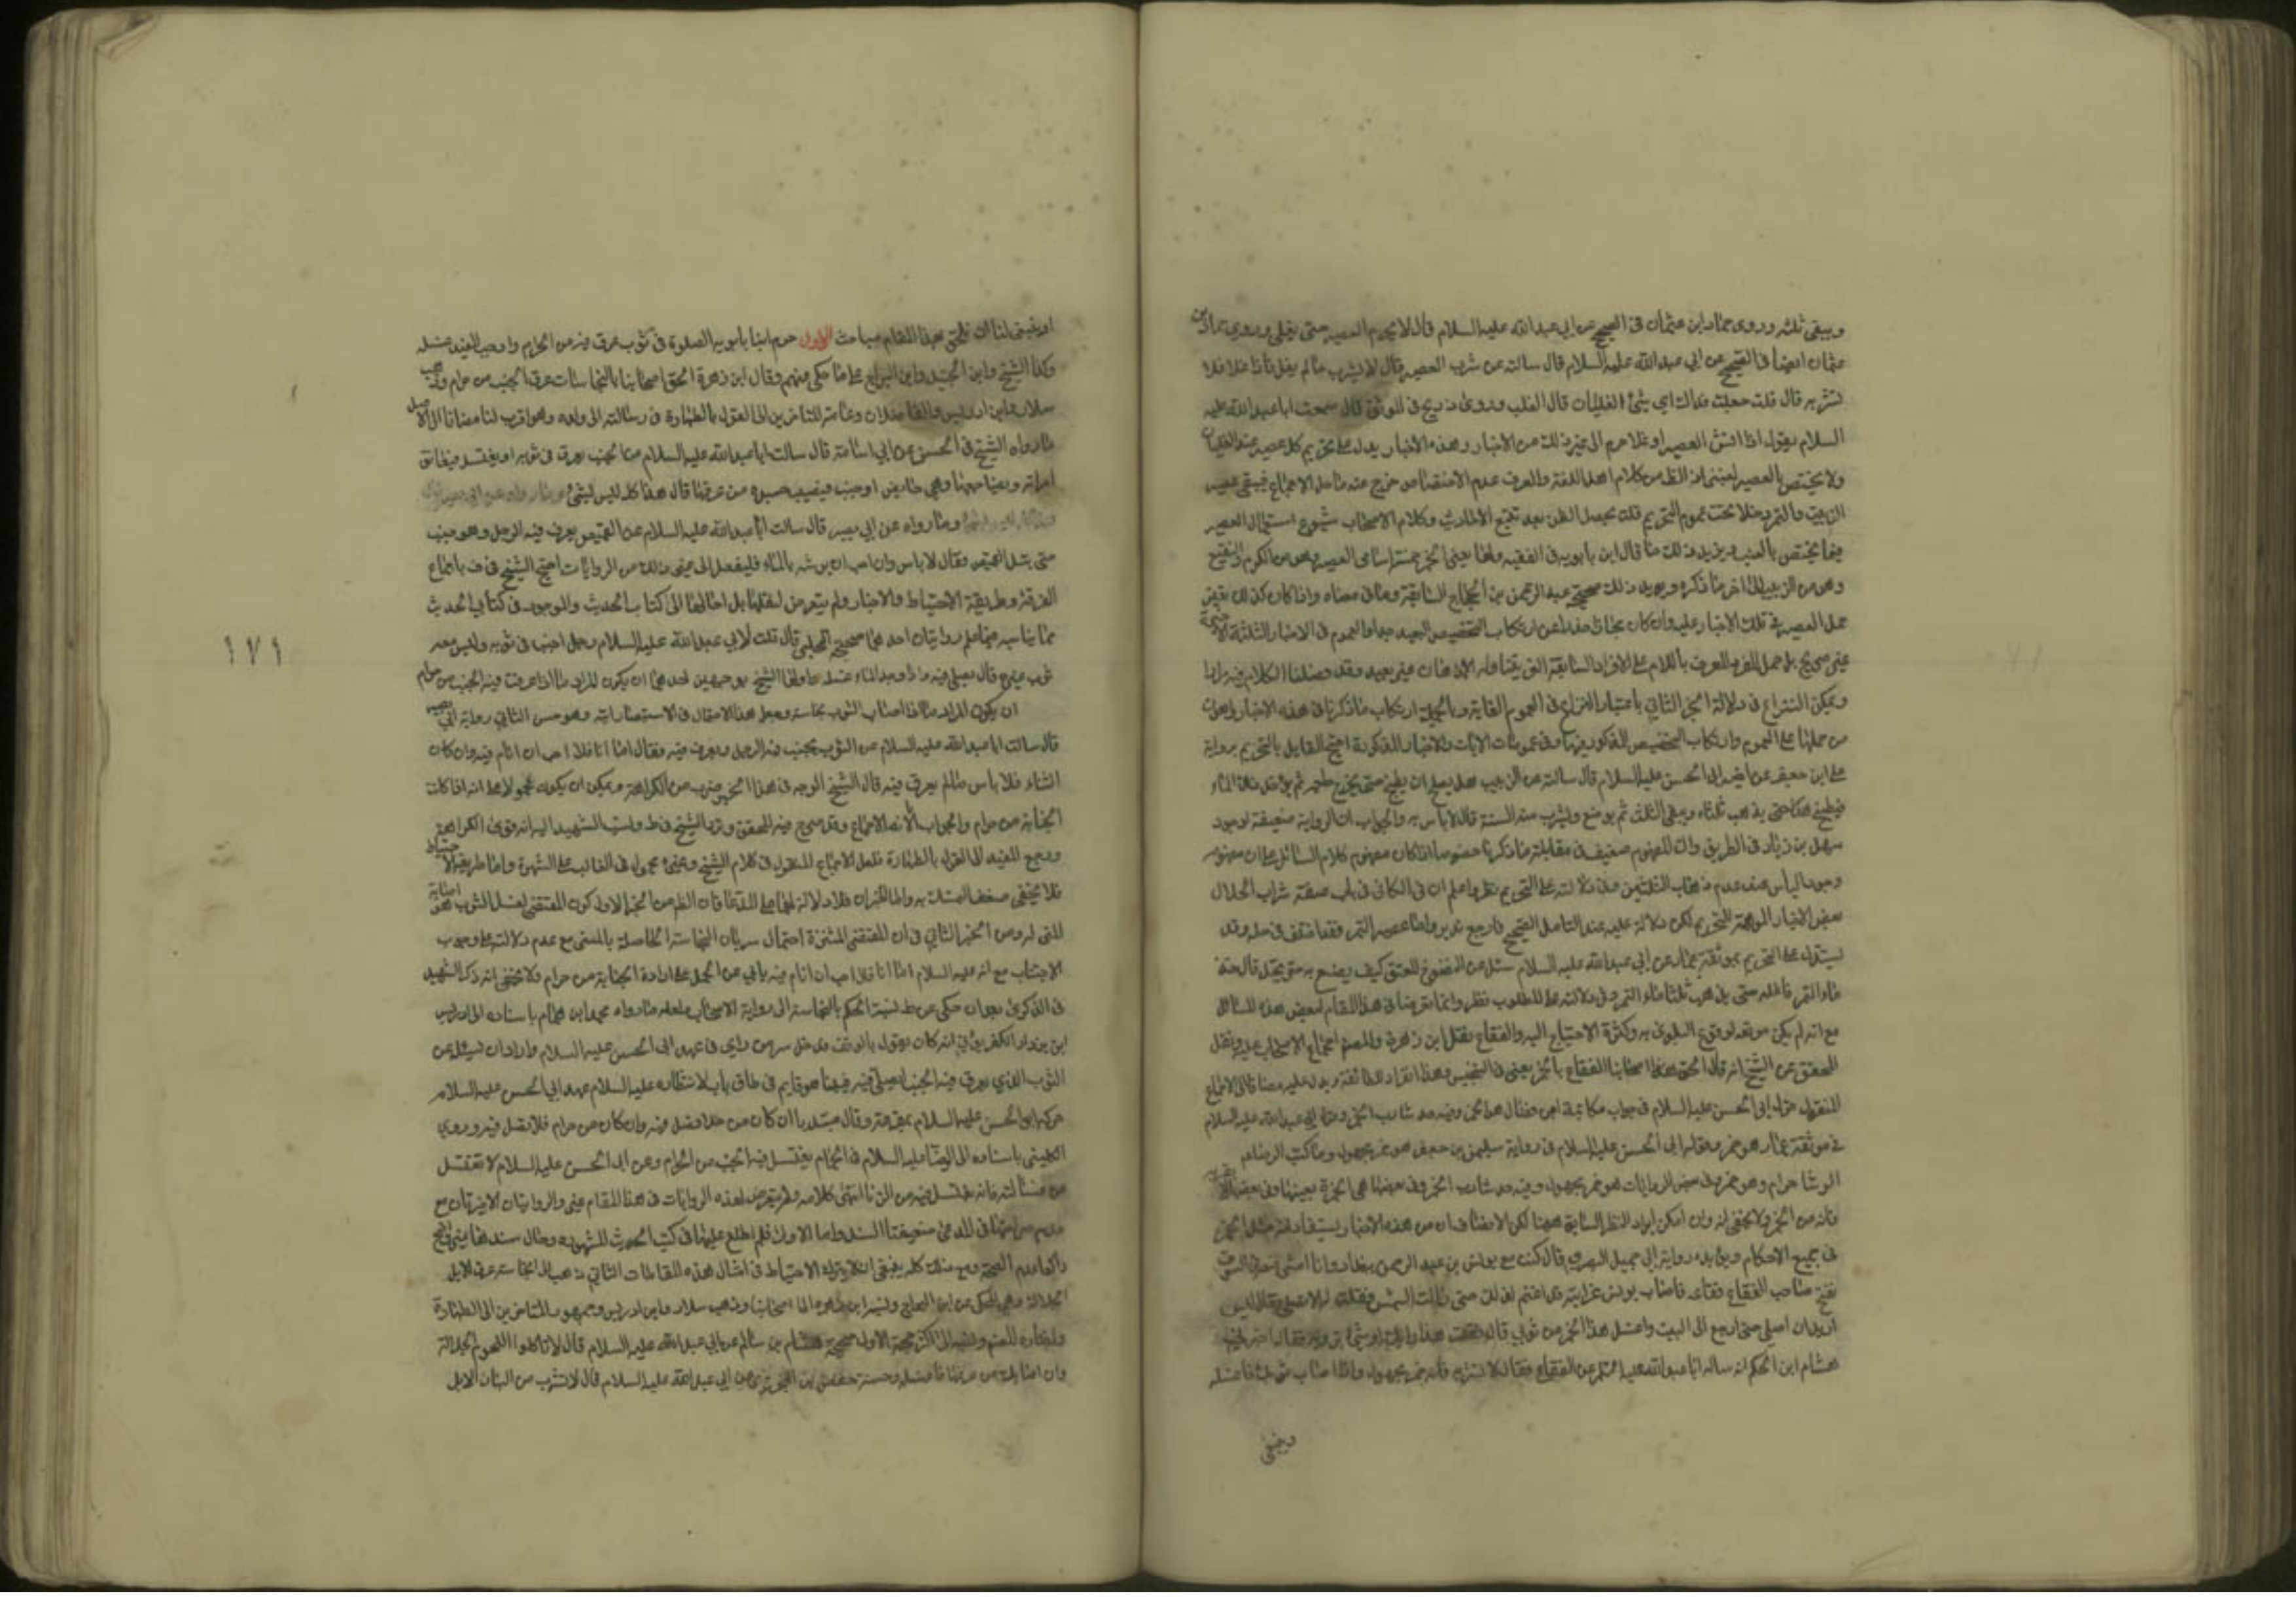 ويبقى ثلثه وروى حماد ابن عثمان في الصحيح عن ابي عبد الله عليه السلام قال لا يحرم العصير حتى يغلي وروى حماد بن
عثمان ايضا في الصحيح عن ابي عبد الله عليه السلام قال سالته عن شرب العصير قال لا يشرب ما لم يغل فاذا غلا فلا
تشربه قال قلت جعلت فداك اي شئ الغليان قال القلب وروى ذريح في الموثق قال سمعت ابا عبد الله عليه
السلام يقول اذا نش العصير او غلا حرم الى غير ذلك من الاخبار وهذه الاخبار يدل على تحريم كل عصير عند الغليان
ولا يختص بالعصير العنبي اذ الظ من كلام اهل اللغة والعرف عدم الاختصاص خرج عنه ما دل الاجماع فيبقى عصير
الزبيب والتمر داخلا تحت عموم التحريم قلت يحصل الظن بعد تتبع الاحاديث وكلام الاصحاب شيوع استعمال العصير
فيما يختص بالعنب ويزيد ذلك ما قال ابن بابويه في الفقيه ولها يعني الخمر خمسة اسامي العصير وهو من الكرم والنقيع
وهو من الزبيب الى اخر ما ذكره ويؤيد ذلك صحيحة عبد الرحمن بن الحجاج السابقة وما في معناه واذا كان كذلك
حمل العصير في تلك الاخبار عليه وان كان مجازا
عن ارتكاب التخصيص البعيد جدا والعموم في الاخبار الثلثة
غير صريح بل حمل المفرد المعرف باللام على الافراد السابقة التي يتناوله الاذهان غير بعيد وقد فصلنا الكلام فيه
ويمكن النزاع في دلالة الخبر الثاني باعتبار النزاع في العموم الغاية وبالجملة ارتكاب ما ذكرنا في هذه الاخبار اهون
من حملها على العموم وارتكاب التخصيص المذكور فيها وفي عمومات الايات والاخبار المذكورة احتج القايل بالتحريم برواية
علي ابن جعفر عن اخيه ابي الحسن عليه السلام قال سالته عن الزبيب هل يصلح ان يطبخ حتى يخرج طعمه ثم يؤخذ ذلك الماء
فيطبخ هكذا حتى يذهب ثلثاه ويبقى الثلث ثم يوضع ويشرب منه السنة قال لا باس به والجواب ان الرواية ضعيفة لوجود
سهل بن زياد في الطريق وان المفهوم ضعيف في مقابلة ما ذكرنا خصوصا اذا كان مفهوم كلام السائل على ان مفهومه
وجود الباس عند عدم ذهاب الثلثين وفي دلالته على التحريم نظر واعلم ان في الكافي في باب صفة شراب الحلال
بعض الاخبار الموهمة للتحريم لكن دلالة عليه عند التامل الصحيح فارجع تدبر واما عصير التمر فقد اختلف في حله وقد
يستدل على التحريم بموثقة عمار عن ابي عبد الله عليه السلام سئل عن النضوح المعتق كيف يصنع به حتى يحل قال خذ
ماء التمر فاغله حتى يذهب ثلثا ماء التمر وفي دلالته على المطلوب نظر وانما تعرضنا في هذا المقام لبعض هذه المسائل
مع انه لم يكن موضعه لوقوع البلوى به وكثرة الاحتياج اليه والفقاع نقل ابن زهرة والمصر اجماع الاصحاب عليه ونقل
المحقق عن الشيخ انه قال الحق اصحابنا الفقاع بالخمر يعني في التنجيس وهذا انفراد الطائفة ويدل عليه مضافا الى الاجماع
المنقول قول ابي الحسن عليه السلام في جواب مكاتبة فقال هو الخمر وفيه حد شارب الخمر وقول ابي عبد الله عليه السلام
في موثقة عمار هو خمر وقول ابي الحسن عليه السلام في رواية سليمن بن جعفر هو خمر مجهول وما كتب الرضا
الوشا حرام وهو خمر وفي بعض الروايات هو خمر مجهول وفيه حد شارب الخمر وفي بعضها هي الخمرة بعينها وفي بعض
فانه من الخمر ولا يخفى انه وان امكن ايراد النظر السابق ههنا لكن الانصاف ان من هذه الاخبار يستفاد انه مثل الخمر
في جميع الاحكام ويؤيده رواية ابي جميل البصري قال كنت مع يونس بن عبد الرحمن ببغداد وانا امشي معه في السوق
ففتح صاحب الفقاع فقاعه فاصاب يونس فرايته قد اغتم لذلك حتى زالت الشمس فقلت له الا تصلي فقال ليس
اريد ان اصلي حتى ارجع الى البيت واغسل هذا الخمر من ثوبي قال فقلت هذا رايك او شئ ترويه فقال اخبرني
هشام ابن الحكم انه سال ابا عبد الله عليه السلام عن الفقاع فقال لا تشربه فانه خمر مجهول واذا اصاب ثوبك فاغسله
وينبغي
او ينبغي لنا ان نلحق بهذا المقام مباحث الاول حرم ابنا بابويه الصلوة في ثوب عرق فيه من الحرام واوجب المفيد غسله
وكذا الشيخ وابن الجنيد وابن البراج على ما حكي عنهم وقال ابن زهرة الحق اصحابنا بالنجاسات عرق الجنب من حرام وذهب
سلار وابن ادريس والفاضلان وعامة المتاخرين الى القول بالطهارة في رسالته الى ولده وهو اقرب لنا مضافا الى الاصل
ما رواه الشيخ في الحسن عن ابي اسامة قال سالت ابا عبد الله عليه السلام عن الجنب يعرق في ثوبه او يغتسل فيعانق
امراته ويضاجعها وهي حايض او جنب فيصيب جسده من عرقها قال هذا كله ليس بشئ
وما رواه عن ابي بصير قال سالت ابا عبد الله عليه السلام عن القميص يعرق فيه الرجل وهو جنب
حتى يبتل القميص فقال لا باس وان احب ان يرشه بالماء فليفعل الى غير ذلك من الروايات احتج الشيخ في ف باجماع
الفرقة وطريقة الاحتياط والاخبار ولم يتعرض لنقلها بل احالها الى كتاب الحديث والموجود في كتابي الحديث
مما يناسبه روايتان احدهما صحيحة الحلبي قال قلت لابي عبد الله عليه السلام رجل اجنب في ثوبه وليس معه
ثوب غيره قال يصلي فيه واذا وجد الماء غسله واولها الشيخ بوجهين احدهما ان يكون المراد ما اذا عرقت فيه الجنب من حرام
ان يكون المراد ما اذا اصاب الثوب نجاسة وجعل هذا الاحتمال في الاستبصار اشبه وهو حسن الثاني رواية ابي بصير
قال سالت ابا عبد الله عليه السلام عن الثوب يجنب فيه الرجل ويعرق فيه فقال اما انا فلا احب ان انام فيه وان كان
الشتاء فلا باس ما لم يعرق فيه قال الشيخ الوجه في هذا الخبر ضرب من الكراهة ويمكن ان يكون محمولا على انه اذا كانت
الجنابة من حرام والجواب
الاجماع وقد صرح فيه المحقق
ورجع المفيد الى القول بالطهارة فلعل الاجماع المنقول في كلام الشيخ وغيره محمول في الغالب على الشهرة واما طريقة الاحتياط
فلا يخفى ضعف التمسك به واما الخبران فلا دلالة لهما على المدعا فان الظ من الخبر الاول كون المقتضي لغسل الثوب اصابة
المني له ومن الخبر الثاني في ان المقتضي للتنزه احتمال سريان النجاسة الحاصلة بالمني مع عدم دلالته على وجوب
الاجتناب مع انه عليه السلام اما انا فلا احب ان انام فيه يابى عن الحمل على ارادة الجنابة من حرام ولا يخفى انه ذكر الشهيد
في الذكرى بعد ان حكى عن ط نسبة الحكم بالنجاسة الى رواية الاصحاب ولعله ما رواه محمد ابن همام باسناده الى ادريس
ابن يزداد الكفرتوثي انه كان يقول بالوقف فدخل سر من راى في عهد ابي الحسن عليه السلام واراد ان يسئله عن
الثوب الذي يعرق فيه الجنب ايصلى فيه فبينما هو قايم في طاق باب لانتظاره عليه السلام
حركه ابو الحسن عليه السلام بمقرعة وقال مبتدءا ان كان من حلال فصل فيه وان كان من حرام فلا تصل فيه وروى
الكليني باسناده الى الرضا عليه السلام في الحمام يغتسل فيه الجنب من الحرام وعن ابي الحسن عليه السلام لا تغتسل
من غسالته فانه يغتسل فيه من الزنا انتهى كلامه ولم يتعرض لهذه الروايات في هذا المقام غيره والروايتان الاخيرتان مع
عدم صراحتهما في المدعى ضعيفتا السند واما الاولى فلم اطلع عليها في كتب الحديث المشهورة وحال سندها غير واضح
والظ عدم الصحة ومع ذلك كله ينبغي ان لا يترك الاحتياط في امثال هذه المقامات الثاني ذهب الى نجاسة عرق الابل
الجلالة وهي المحكي عن ابن البراج ونسبه ابن زهرة الى اصحابنا وذهب سلار وابن ادريس وجمهور المتاخرين الى الطهارة
واختاره المصر ونسبه الى الاكثر حجة الاول صحيحة هشام بن سالم عن ابي عبد الله عليه السلام قال لا تاكلوا اللحوم الجلالة
وان اصابك من عرقها فاغسله وحسنة حفص بن البختري عن ابي عبد الله عليه السلام قال لا تشرب من البان الابل
١٧١